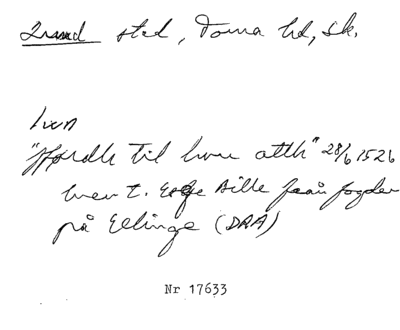 Lund stad, Torna hd, Sk.
Lwn
"ffördh til lwn atth" 28/6 1526
brev t. Eske Bille från fogden
på Ellinge (DRA)
Nr 17633